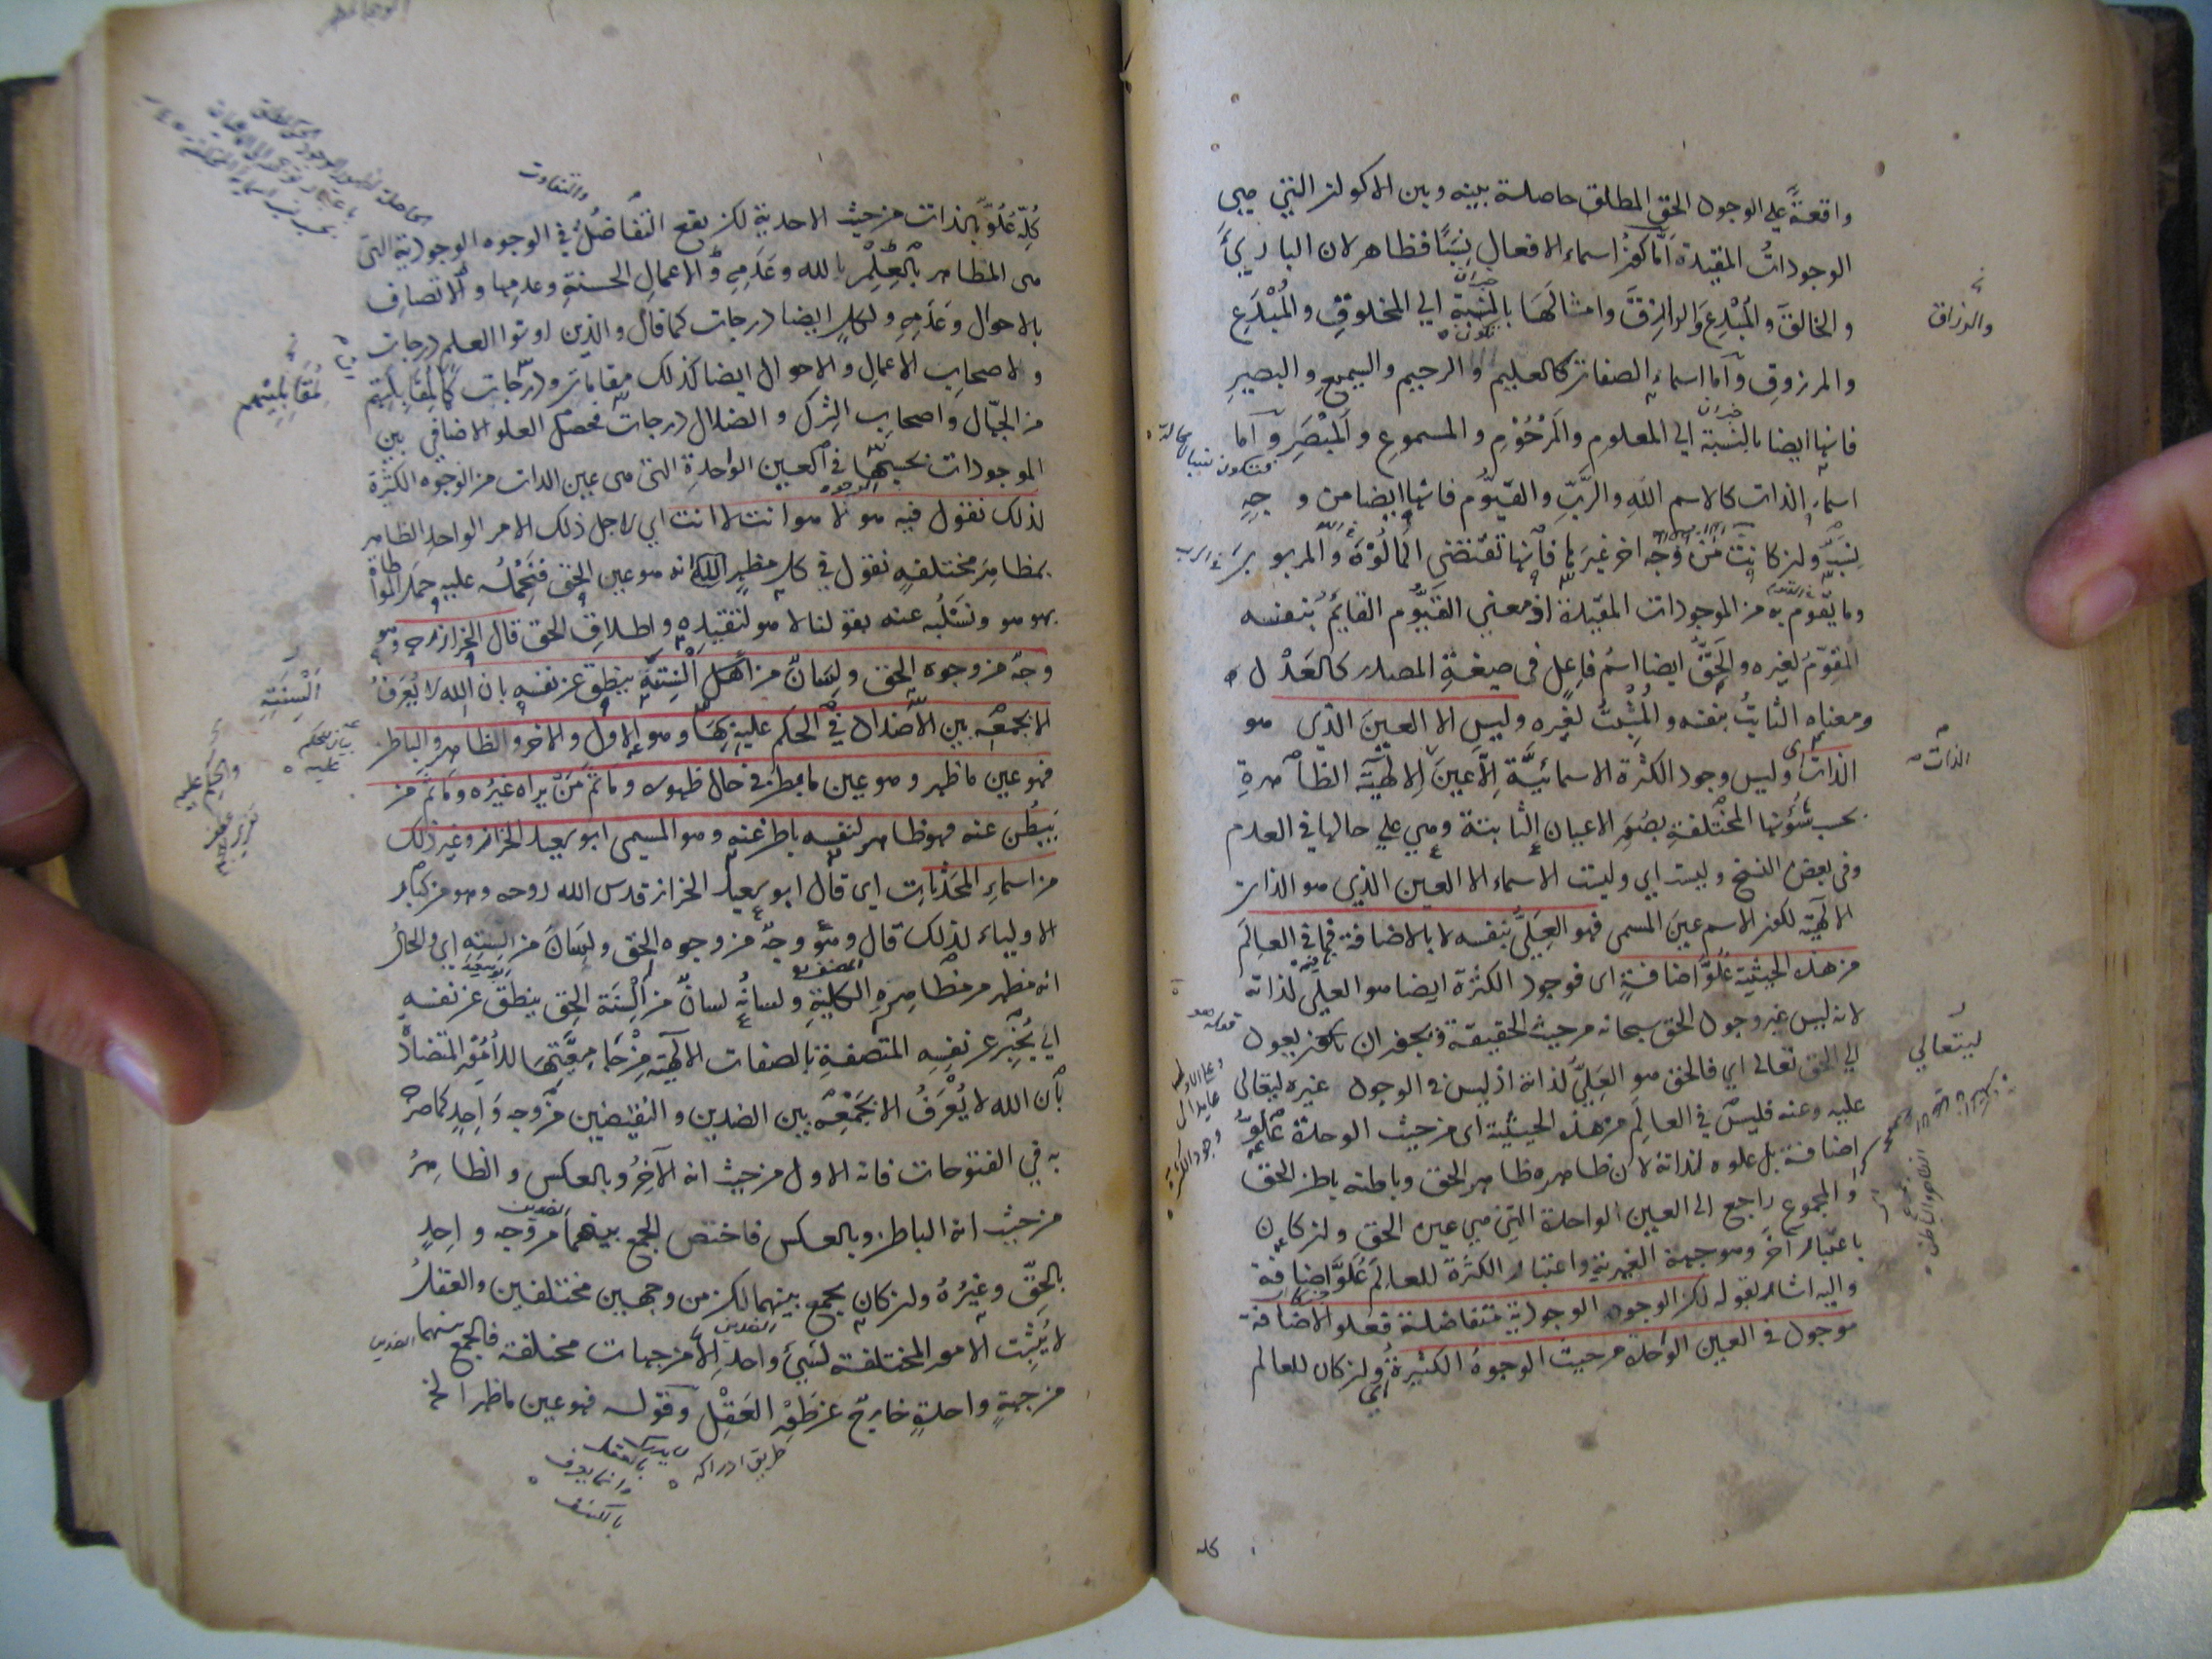 واقعةً علي الوجود الحق المطلق حاصلة بينه وبين الاكوان التي هي
الوجوداتُ المقيدة اَمّا كون اسماء الافعال نِسَبًا فظاهر لان البارئَ
والخالقَ والمُبْدِعَ والرازقَ وامثالَهَا بالنسبة الي المخلوقِ والمُبْدَعِ
والرزاق
والمرزوقِ وآما اسماء الصفات كالعليم والرحيم والسميع والبصيرِ
فانها ايضا بالنسبة الي المعلومِ والمَرْحُوْمِ والمسموعِ والمُبْصَرِ وآما
اسماء الذات كالاسم اللهِ والرَّبِّ والقيّوُم فانها ايضا من وجهٍ
نِسَبٌ وان كانت من وجه اخر غيرَها فانها تقتضي المألُوْهَ والمربوبَ
وما يقوم به من الموجودات المقيّدة اذ معني القَيُّوم القايمُ بنفسه
المقوِّمُ لغيره والحَقُّ ايضا اسمُ فاعلٍ في صيغةِ المصدر كالعَدْل ه
ومعناه الثابتُ بنفسه والمُثْبِتُ لغيره وليس الا العينَ الذي هو
الذات اي وليس وجود الكثرة الاسمائيَّة اِلَّا عينَ الالهيّة الظاهرةِ
الذات
بحسب شُئُونها المختلفةِ بصُوَرِ الاعيان الثابتة وهي علي حالها في العدم
وفي بعض النسخ وليست اي وليست الاسماء الا العين الذي هو الذات
الالهيّة لكون الاسم عينَ المسمى فهو العَليُّ بنفسه لا بالاضافة فما في العالَمِ
من هذه الحيثية عُلُوُّ اضافةٍ اى فوجود الكثرة ايضا هو العلي لذاته
لانه ليس غير وجود الحق سبحانه من حيث الحقيقة ويجوز ان يكون يعود
الي الحق تعالى اي فالحق هو العَليُّ لذاته اذ ليس في الوجود غيره ليتعالى
ليتعالي
عليه وعنه فليس في العالَم من هذه الحيثية اى من حيث الوحدة عُلُوُّ
اضافة بل علوه لذاته لان ظاهره ظاهر الحق وباطنه باطن الحق
والمجموع راجع الى العين الواحدة التي هي عين الحق وان كان
باعتبار آخر وهو جهة الغيرية واعتبار الكثرة للعالَم عُلُوُّ اضافة
واليه اشار بقوله لكن الوجوه الوجودية متفاضلة فعلو الاضافة
موجود في العين الواحدة من حيث الوجوه الكثيرة اي وان كان للعالم
كله
كُلِّه عُلُوٌّ بالذات من حيث الاحدية لكن يقع التفاضُلُ في الوجوه الوجودية التى
والتفاوت
هى المظاهر بالعِلْمِ بالله وعَدَمِهِ والاعمالِ الحسنةِ وعدمِها والاتصافِ
بالاحوال وعَدَمِهِ ولكلٍ ايضا درجات كما قال والذين اوتوا العلم درجات
ولاصحاب الاعمالِ والاحوال ايضا كذلك مقامات ودرجات كما لمقابليهم
من الجهّال واصحاب الشرك والضلال درجات فحصل العلو الاضافي بين
الموجودات بحسبها في العين الواحدةِ التى هى عين الذات من الوجوه الكثيرة
لذلك نقول فيه هو لا هو انت لا انت اي لاجل ذلك الامر الواحد الظاهر
بمظاهرَ مختلفةٍ نقول في كل مظهرٍ انه هو عين الحق فنَحْمِلُه عليه حمل المواطاة
بهو هو ونَسْلُبُه عنه بقولنا لا هو لتقييدِه واطلاقِ الحق قال الخراز رحه وهو
وجهٌ من وجوه الحق ولِسَانٌ من اَلْسِنَتِهِ ينطق عن نفسه بان الله لا يُعْرَفُ
اَلْسِنَتِهِ
الا بجمعِه بين الاضداد في الحكم عليه بها وهو الاول والاخر والظاهر والباطن
فهو عين ما ظهر وهو عين ما بطن في حال ظهوره وما ثَمَّ مَنْ يراه غيرُه وما ثَمَّ مَن
يَبْطُن عنه فهو ظاهر لنفسه باطن عنه وهو المسمى ابو سعيد الخراز وغير ذلك
من اسماءِ المحدَثاتِ اي قال ابو سعيد الخراز قدس الله روحه وهو من كبار
الاولياء لذلك قال وهو وجهٌ من وجوه الحق ولِسَانٌ من السنته اي والحالُ
انه مظهر من مظاهره الكلية ولسانُه لسانٌ من اَلْسِنَة الحق ينطق عن نفسه
اي يُخْبِر عن نفسِه المتصفةِ بالصفات الالهيّة من جامعيَّتِهَا للأمور المتضادّة
بأن الله لا يُعْرَفُ الا بجَمْعِه بين الضدين والنقيضين من وجه وَاحِدٍ كما صرح
به في الفتوحات فانه الاول من حيث انه الآخرُ وبالعكس والظاهِرُ
من حيث انه الباطن وبالعكس فاختص الجمع بينهما من وجه واحِدٍ
بالحقِّ وغيرُهُ وان كان يجمع بينهما لكن من وجهين مختلفين والعقلُ
لا يُثْبِت الامور المختلفة لشئٍ واحد اِلّا من جهات مختلفة فالجمع بينهما
من جهةٍ واحدةٍ خارجٌ عن طَوْرِ العَقْلِ وقوله فهو عين ما ظهر الخ
طريق ادراكه
وانما يعرف
بالكشف